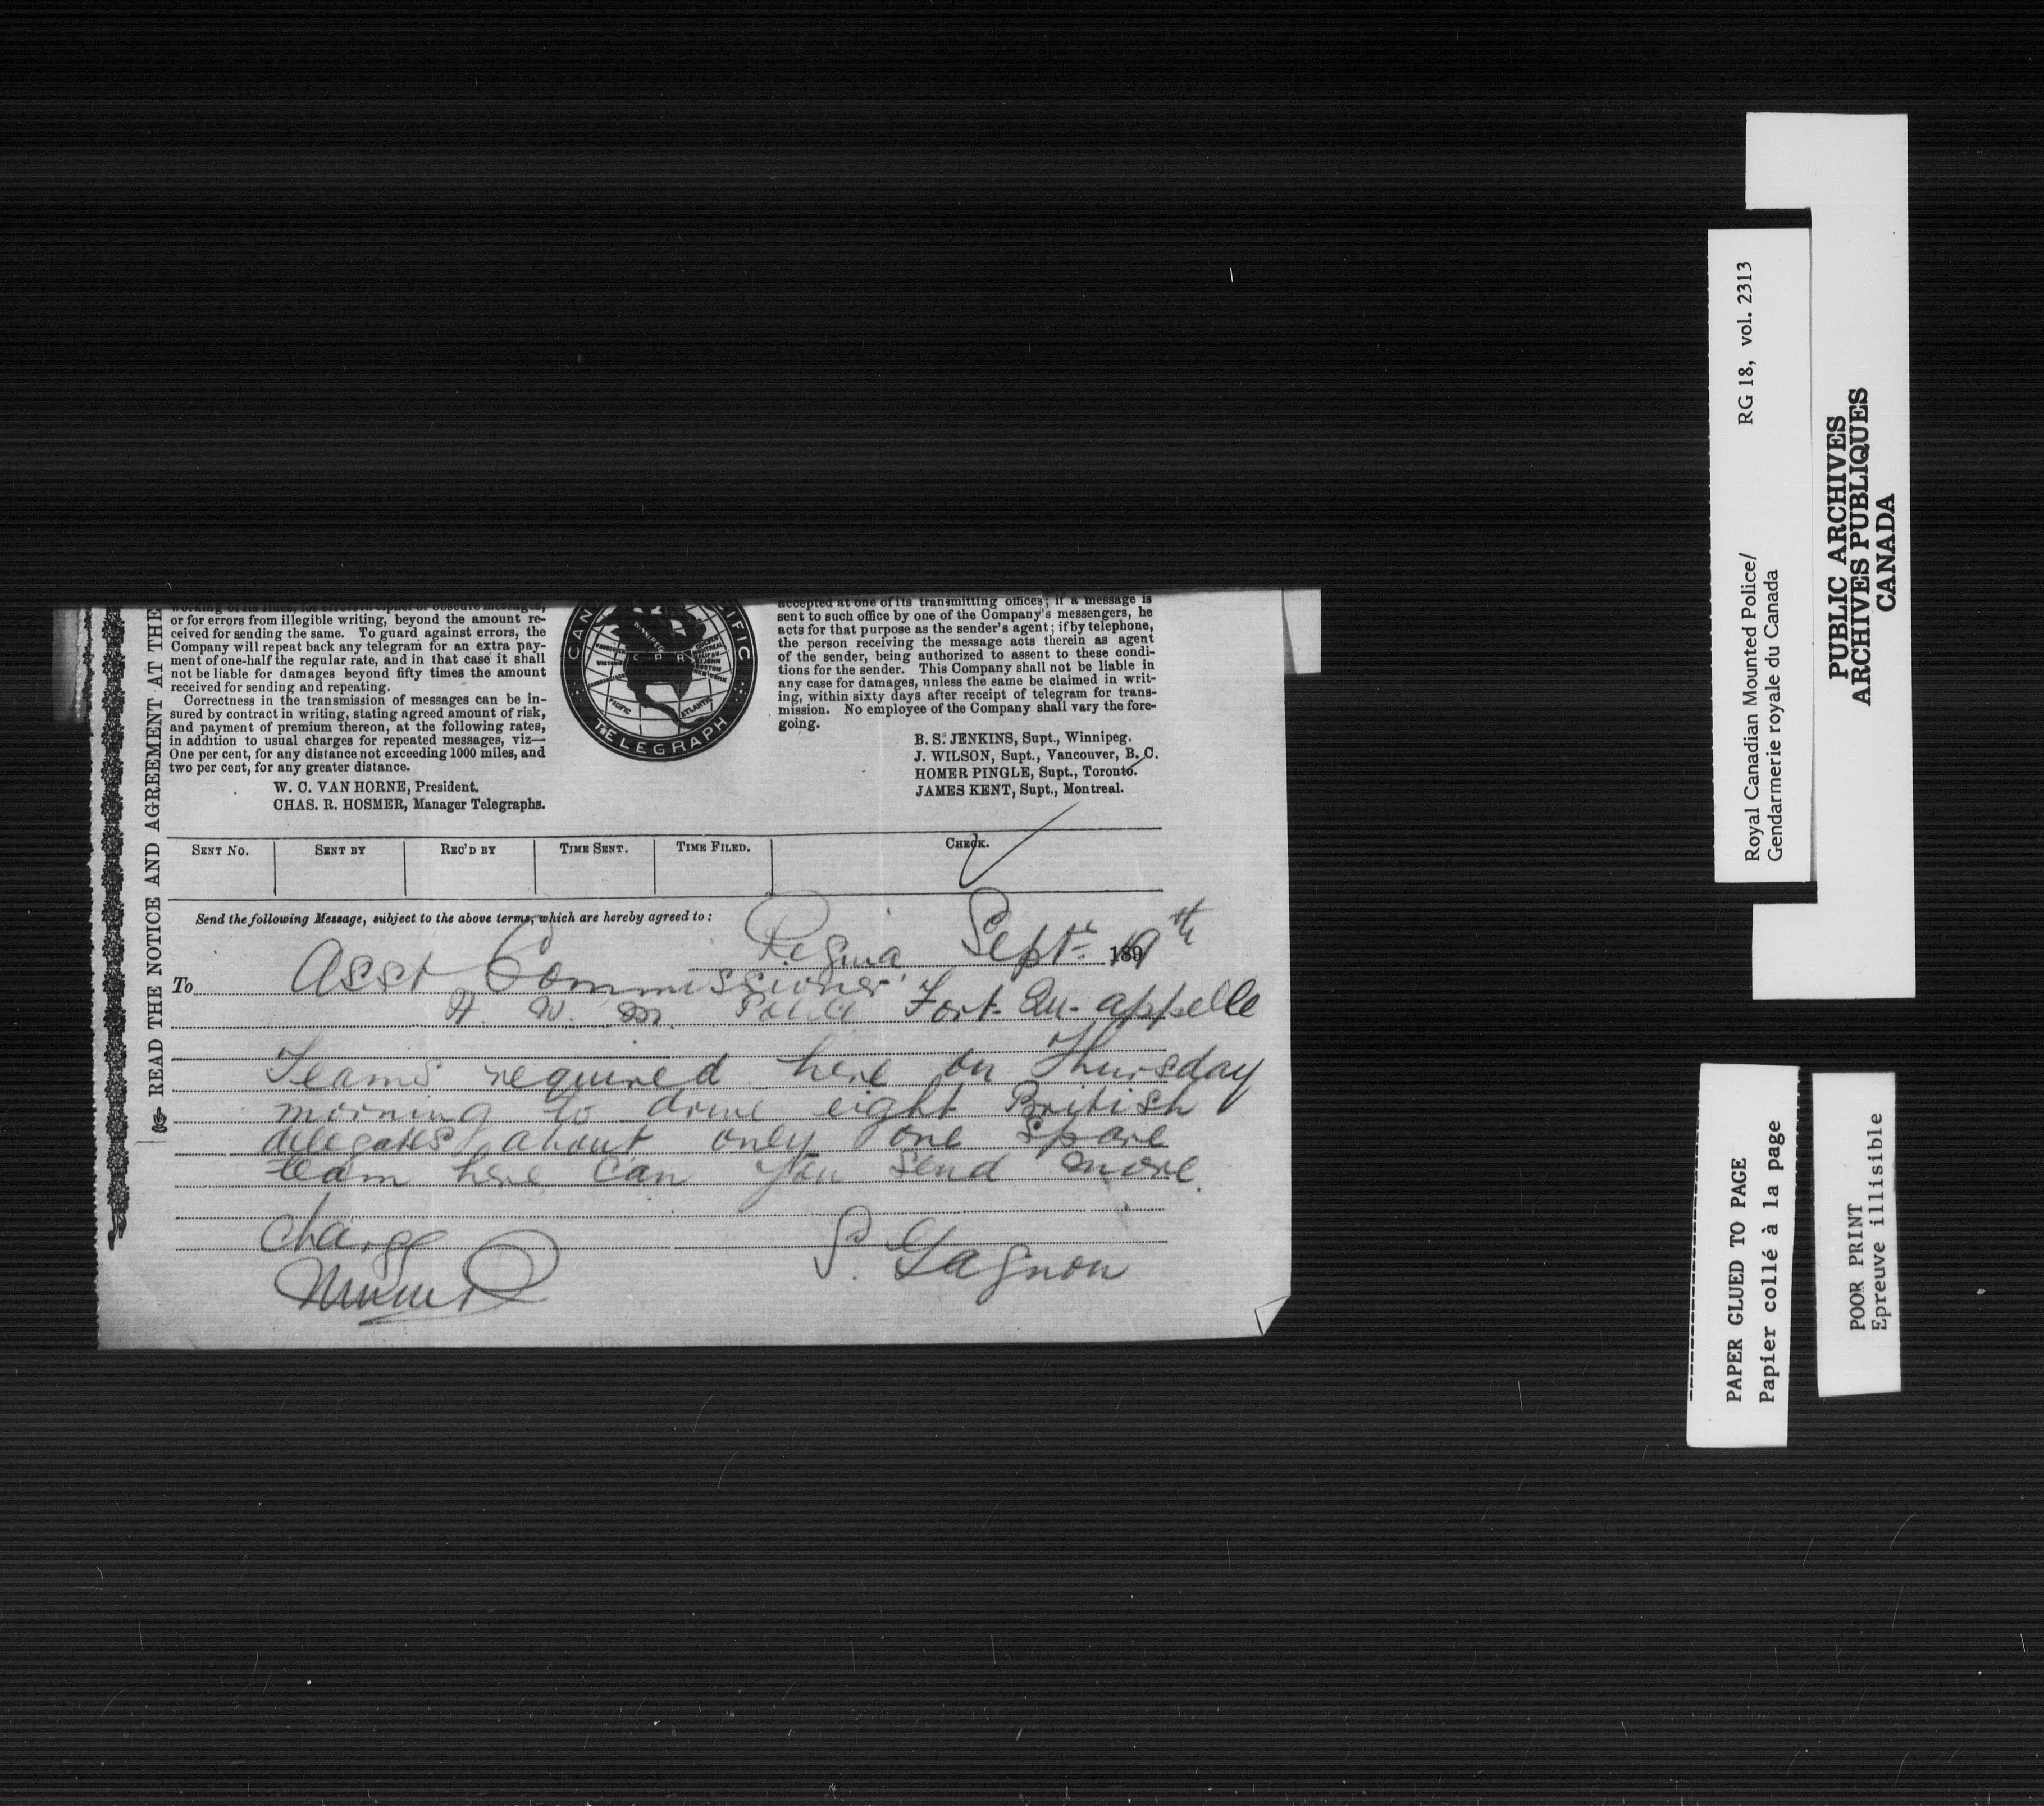 READ THE NOTICE AND AGREEMENT AT THE
working of its lines, for errors in cipher or obscure messages,
or for errors from illegible writing, beyond the amount re-
ceived for sending the same. To guard against errors, the
Company will repeat back any telegram for an extra pay-
ment of one-half the regular rate, and in that case it shall
not be liable for damages beyond fifty times the amount
received for sending and repeating.
Correctness in the transmission of messages can be in-
sured by contract in writing, stating agreed amount of risk,
and payment of premium thereon, at the following rates,
in addition to usual charges for repeated messages, viz—
One per cent, for any distance not exceeding 1000 miles, and
two per cent, for any greater distance.
W. C. VAN HORNE, President.
CHAS. R. HOSMER, Manager Telegraphs.
TELEGRAPH
C P R
WINNIPEG
PACIFIC
ATLANTIC
accepted at one of its transmitting offices; if a message is
sent to such office by one of the Company's messengers, he
acts for that purpose as the sender's agent; if by telephone,
the person receiving the message acts therein as agent
of the sender, being authorized to assent to these condi-
tions for the sender. This Company shall not be liable in
any case for damages, unless the same be claimed in writ-
ing, within sixty days after receipt of telegram for trans-
mission. No employee of the Company shall vary the fore-
going.
B. S. JENKINS, Supt., Winnipeg.
J. WILSON, Supt., Vancouver, B. C.
HOMER PINGLE, Supt., Toronto.
JAMES KENT, Supt., Montreal.
SENT NO. SENT BY REC'D BY TIME SENT. TIME FILED. CHECK.
Send the following Message, subject to the above terms, which are hereby agreed to:
Regina Sept. 19th 189
To Asst Commissioner
N. W. M. Police Fort Qu-appelle
Teams required here on Thursday
morning to drive eight British
delegates about only one spare
team here can you send more
Charge
S. Gagnon
Royal Canadian Mounted Police/ RG 18, vol. 2313
Gendarmerie royale du Canada
PUBLIC ARCHIVES
ARCHIVES PUBLIQUES
CANADA
PAPER GLUED TO PAGE
Papier collé à la page
POOR PRINT
Epreuve illisible